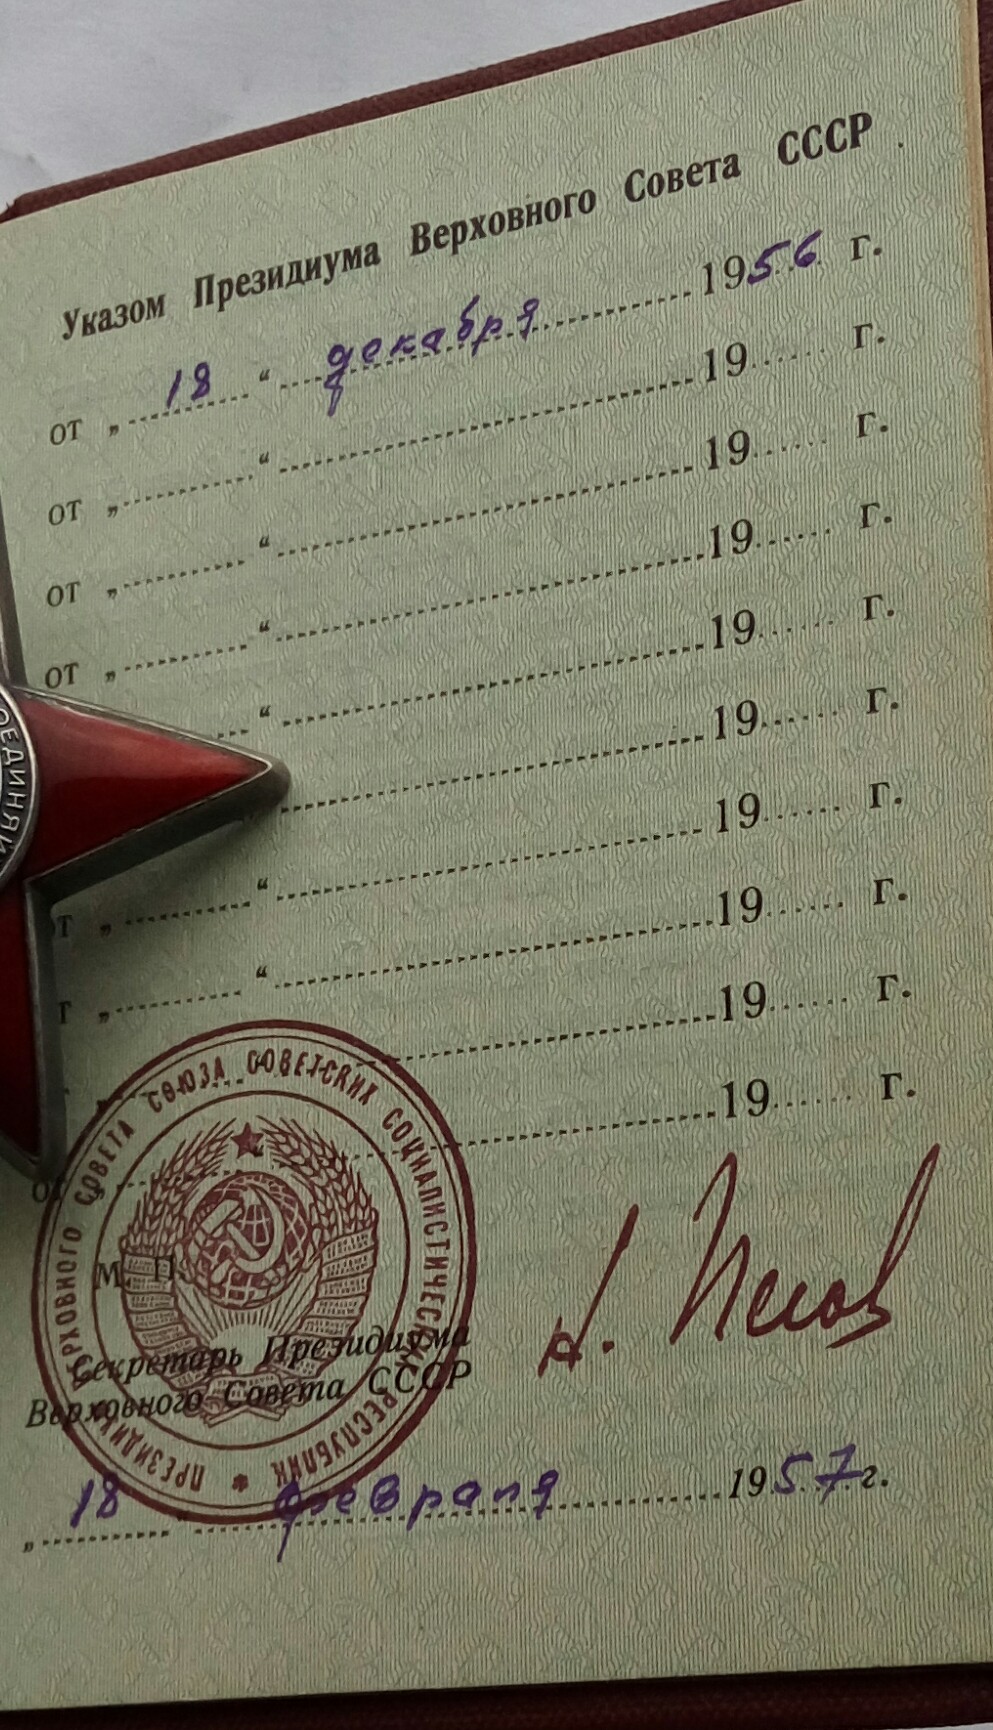 Указом Президиума Верховного Совета СССР
от „ 18 “ декабря 1956 г.
от „ “ 19 г.
от „ “ 19 г.
от „ “ 19 г.
“ 19 г.
19 г.
от „ “ 19 г.
т „ “ 19 г.
19 г.
от 19 г.
ОЕДИНЯЙ
ПРЕЗИДИУМ ВЕРХОВНОГО СОВЕТА СОЮЗА СОВЕТСКИХ СОЦИАЛИСТИЧЕСКИХ РЕСПУБЛИК
М. П.
Секретарь Президиума
Верховного Совета СССР
„ 18 “ февраля 1957 г.